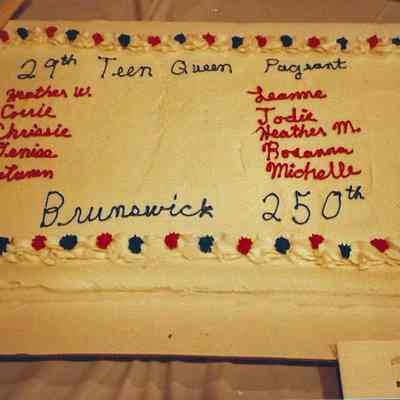 29th Teen Queen Pageant
Heather W.
Corrie
Chrissie
Denise
Leanne
Jodie
Heather M.
Rosanna
Michelle
Brunswick 250th